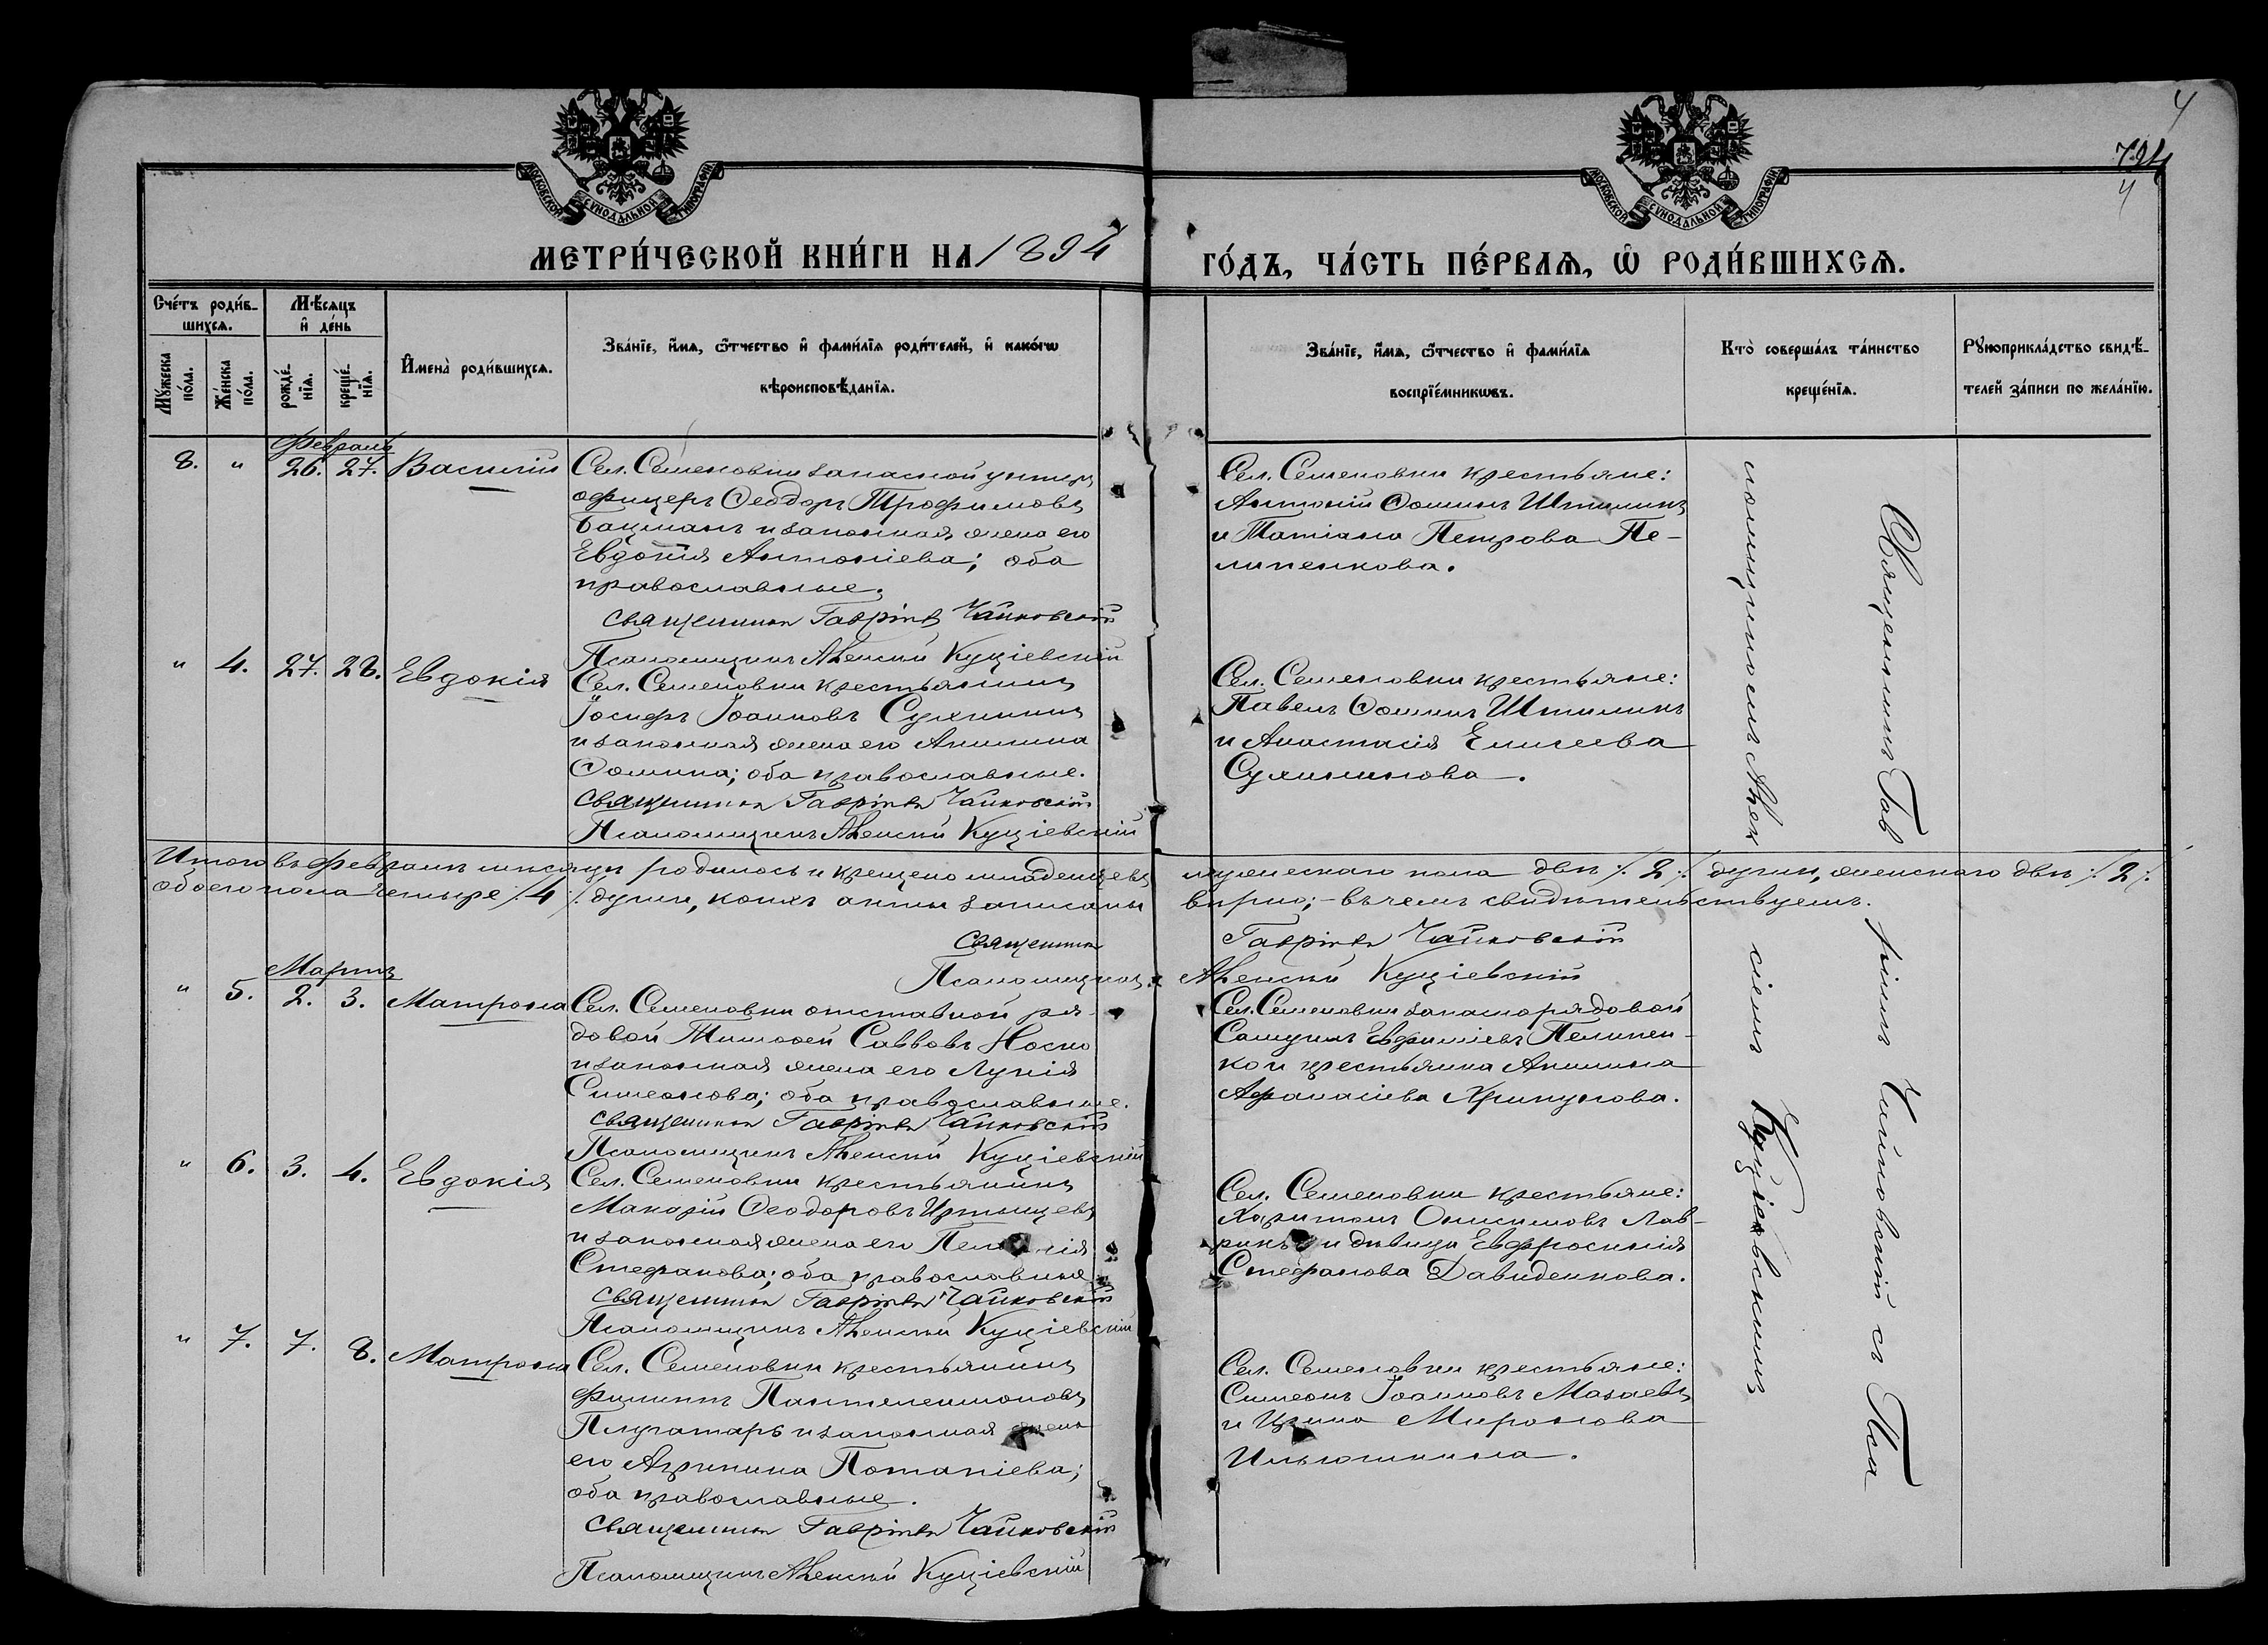 4
794
4
МОСКОВСКОЙ СѴНОДАЛЬНОЙ ТИПОГРАФІИ
МОСКОВСКОЙ СѴНОДАЛЬНОЙ ТИПОГРАФІИ
МЕТРИ́ЧЕСКОЙ КНИ́ГИ НА 1894 ГО́ДЪ, ЧА́СТЬ ПЕ́РВАѦ, Ѡ҆ РОДИ́ВШИХСѦ.
Сче́тъ роди́в-
шихсѧ.
Мѣ́сѧцъ
и҆ де́нь
Мꙋ́жеска
по́ла.
Же́нска
по́ла.
рожде́-
нїѧ.
креще́-
нїѧ.
И҆мена̀ роди́вшихсѧ.
Зва́нїе, и҆́мѧ, ѻ҆́тчество и҆ фами́лїѧ роди́телей, и҆ како́гѡ
вѣроисповѣ́данїѧ.
Зва́нїе, и҆́мѧ, ѻ҆́тчество и҆ фами́лїѧ
воспрїе́мникѡвъ.
Кто̀ соверша́лъ та́инство
креще́нїѧ.
Рꙋкоприкла́дство свидѣ́-
телей за́писи по жела́нїю.
Февраль
8. " 26. 27. Василій
Сел. Семеновки запасной унтеръ
офицеръ Ѳеодоръ Трофимовъ
Бацманъ и законная жена его
Евдокія Антоніева; оба
православные.
Священникъ Гавріилъ Чайковскій
Псаломщикъ Алексій Куціевскій
Сел. Семеновки крестьяне:
Антоній Ѳоминъ Штилинъ
и Татіана Петрова Пе-
липенкова.
" 4. 27. 28. Евдокія
Сел. Семеновки крестьянинъ
Іосифъ Іоанновъ Сухининъ
и законная жена его Акилина
Ѳомина; оба православные.
Священникъ Гавріилъ Чайковскій
Псаломщикъ Алексій Куціевскій
Сел. Семеновки крестьяне:
Павелъ Ѳоминъ Штилинъ
и Анастасія Елисеева
Сухининова.
Итого въ Февралѣ мѣсяцѣ родилось и крещено младенцевъ мужескаго пола двѣ /:2:/ души, женскаго двѣ /:2:/
обоего пола четыре /:4:/ души, коихъ акты записаны вѣрно; – въ чемъ свидѣтельствуемъ.
Священникъ Гавріилъ Чайковскій
Псаломщикъ Алексій Куціевскій
Мартъ
" 5. 2. 3. Матрона
Сел. Семеновки отставной ря-
довой Тимоѳей Савовъ Носко
и законная жена его Лукія
Симеонова; оба православные.
Священникъ Гавріилъ Чайковскій
Псаломщикъ Алексій Куціевскій
Сел. Семеновки запасн. рядовой
Самуилъ Евфиміевъ Пелипен-
ко и крестьянка Акилина
Аѳанасіева Хрипунова.
" 6. 3. 4. Евдокія
Сел. Семеновки крестьянинъ
Макарій Ѳеодоровъ Иртищевъ
и законная жена его
Стефанова; оба православные.
Священникъ Гавріилъ Чайковскій
Псаломщикъ Алексій Куціевскій
Сел. Семеновки крестьяне:
Харитонъ Онисимовъ Лав-
рикъ и дѣвица Евфросинія
Стефанова Давиденкова.
" 7. 7. 8. Матрона
Сел. Семеновки крестьянинъ
Филиппъ Пантелеимоновъ
Плугатарь и законная жена
его Агрипина Потапіева;
оба православные.
Священникъ Гавріилъ Чайковскій
Псаломщикъ Алексій Куціевскій
Сел. Семеновки крестьяне:
Симеонъ Іоанновъ Мазаевъ
и Ирина Миронова
Ильюшкина.
Священникъ Гавріилъ Чайковскій съ Пса
ломщикомъ Алексіемъ Куціевскимъ